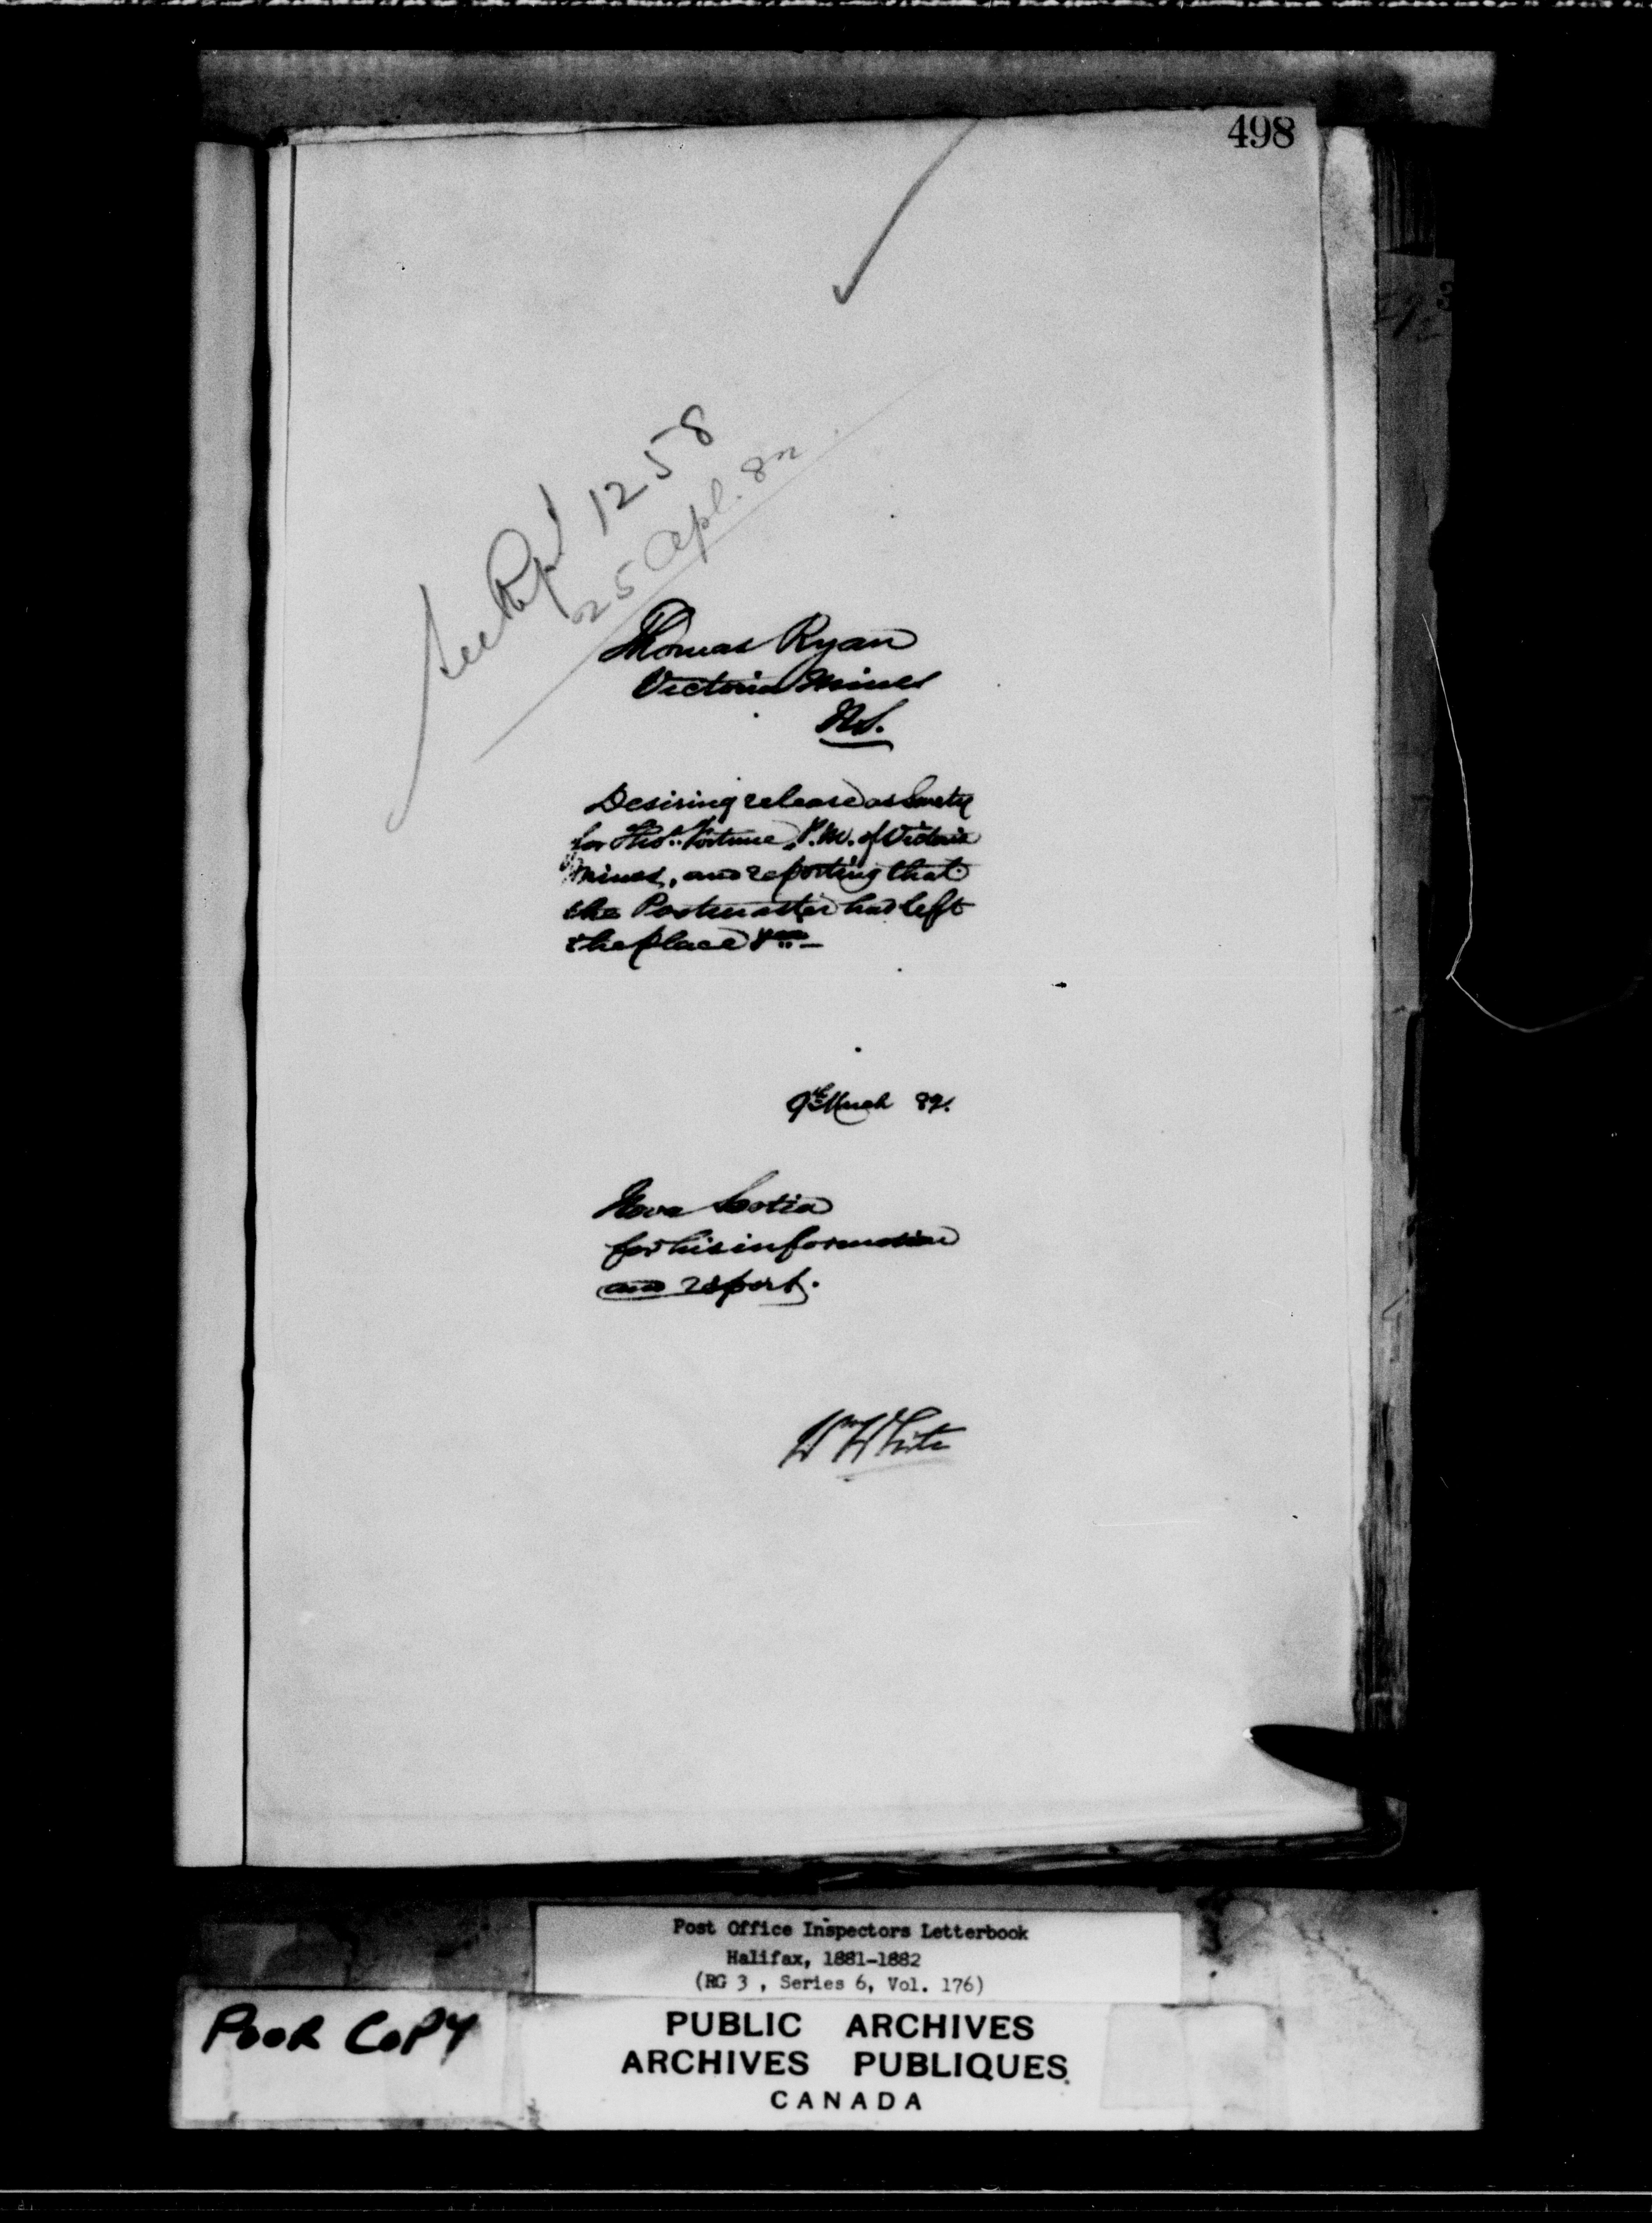 498
See Rept 1258
25 Apl. 82
Thomas Ryan
Victoria Mines
N.S.
Desiring release as Surety
for Thos. Fortune, P.M. of Victoria
Mines, and reporting that
the Postmaster had left
the place &c.
9th March 82.
Nova Scotia
for his information
and report.
Wm White
Post Office Inspectors Letterbook
Halifax, 1881-1882
(RG 3 , Series 6, Vol. 176)
POOR COPY
PUBLIC ARCHIVES
ARCHIVES PUBLIQUES
CANADA